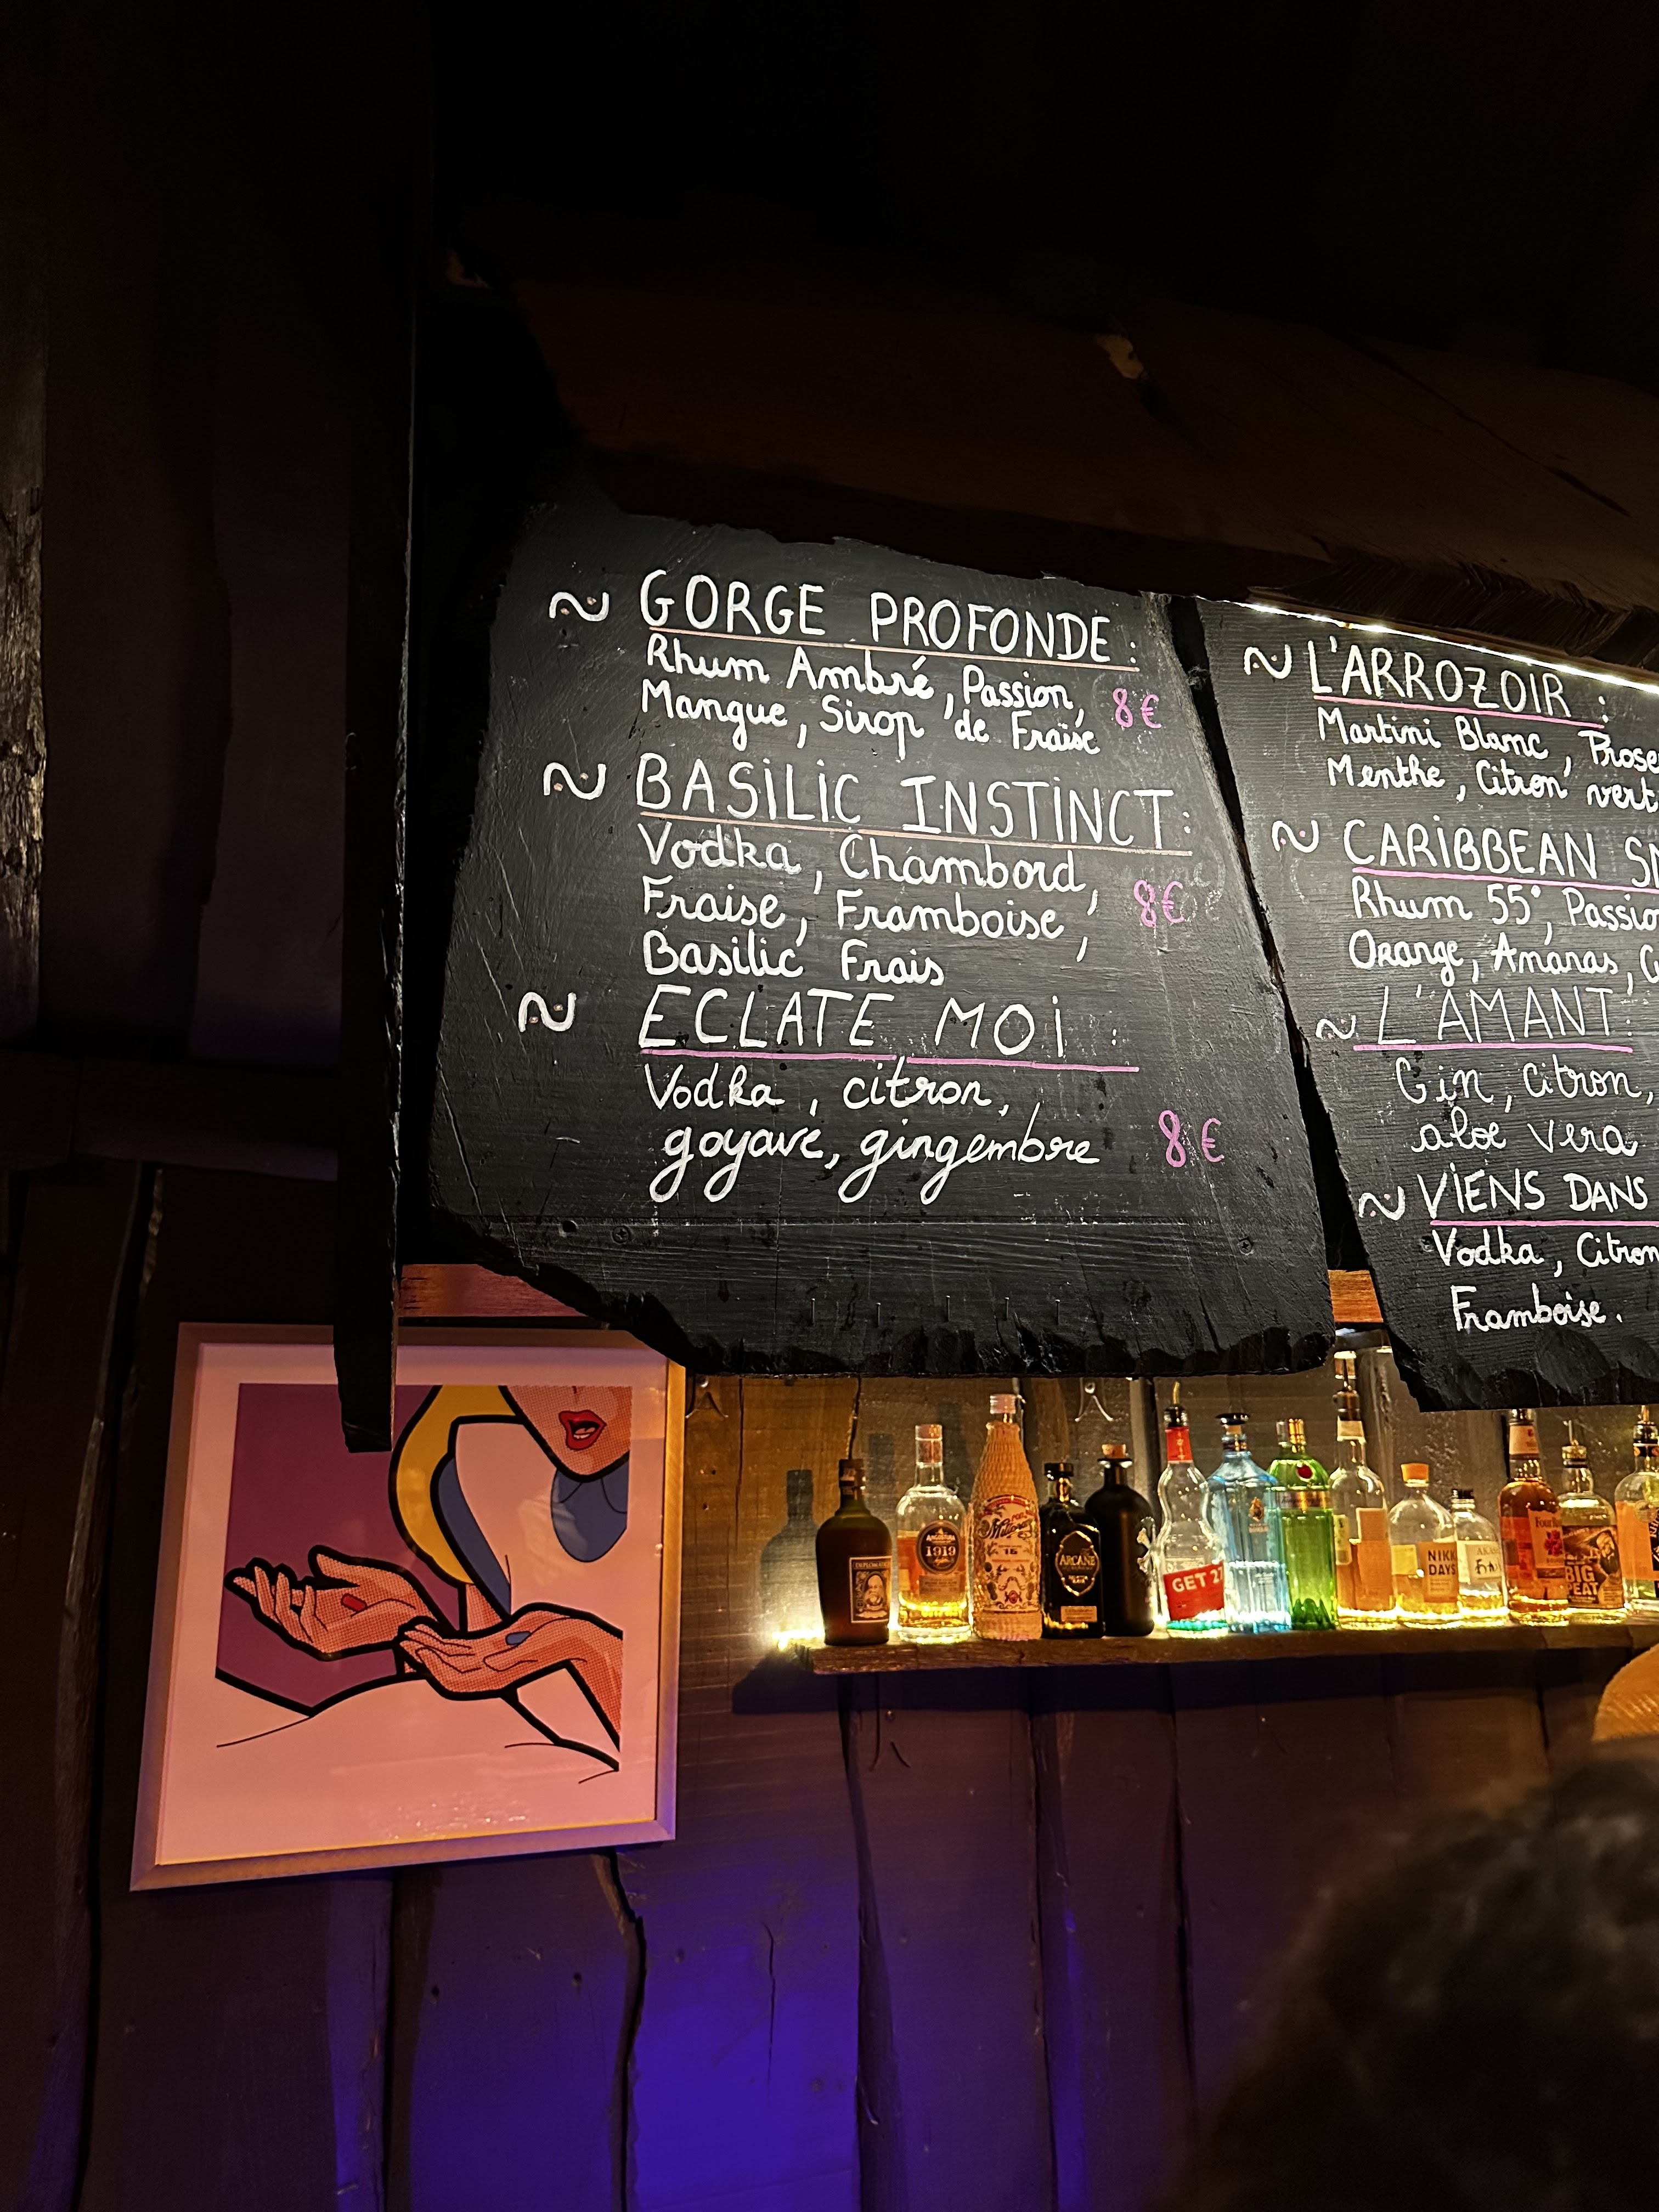 ~ GORGE PROFONDE :
Rhum Ambré, Passion,
Mangue, Sirop de Fraise
8€
~ BASILIC INSTINCT :
Vodka, Chambord,
Fraise, Framboise,
8€
Basilic Frais
~ ECLATE MOI :
Vodka, citron,
goyave, gingembre
8€
~ L'ARROZOIR :
Martini Blanc,
Menthe, Citron vert
~ CARIBBEAN
Rhum 55°,
Orange, Ananas,
~ L'AMANT :
Gin, citron,
aloe vera
~ VIENS DANS
Vodka, Citron
Framboise.
1919
ARCANE
GET 27
NIKKA
DAYS
BIG
PEAT